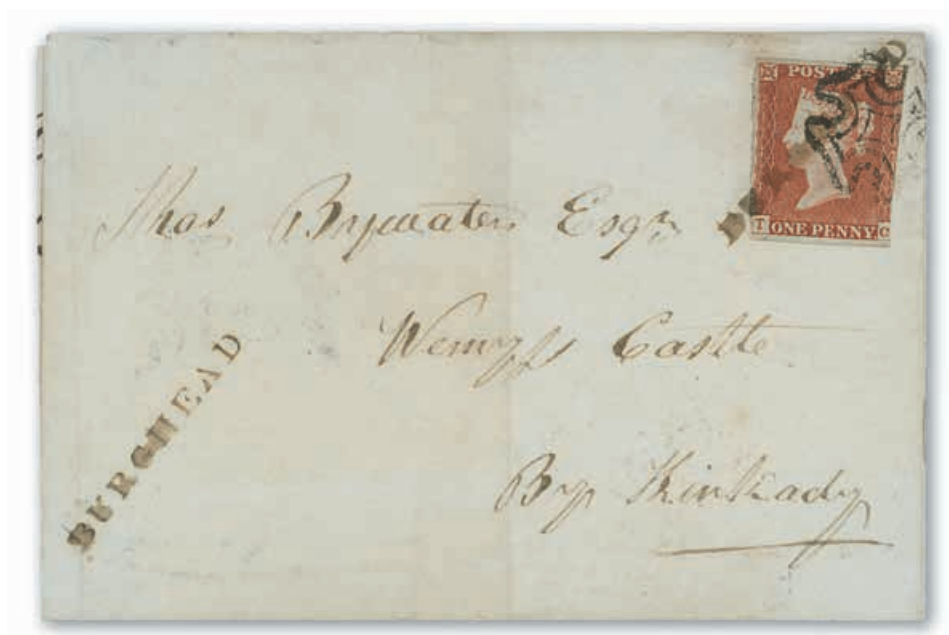 POSTAGE
T ONE PENNY C
Thos Bywater Esqr
Wemyss Castle
By Kirkcady
BURGHEAD